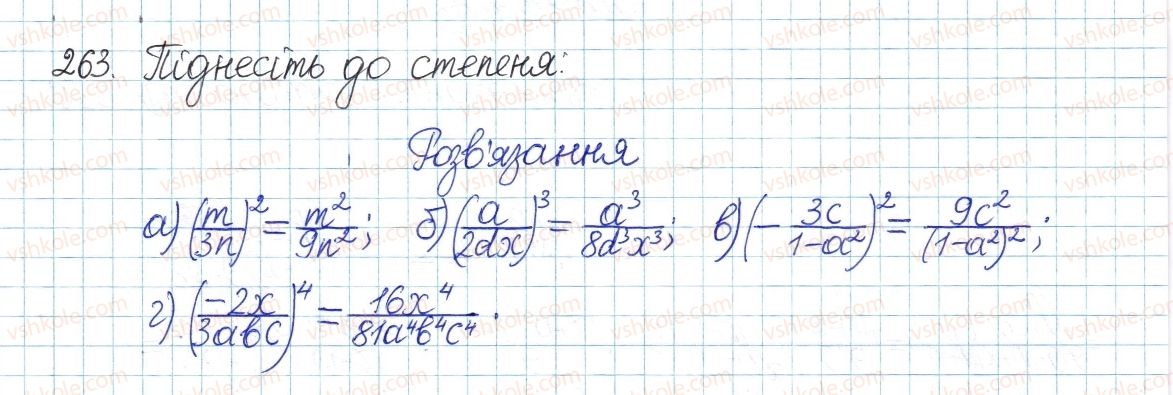 263. Піднесіть до степеня:
Розв'язання
а) (m/3n)² = m²/9n²; б) (a/2dx)³ = a³/8d³x³; в) (- 3c/1-a²)² = 9c²/(1-a²)²;
г) (-2x/3abc)⁴ = 16x⁴/81a⁴b⁴c⁴.